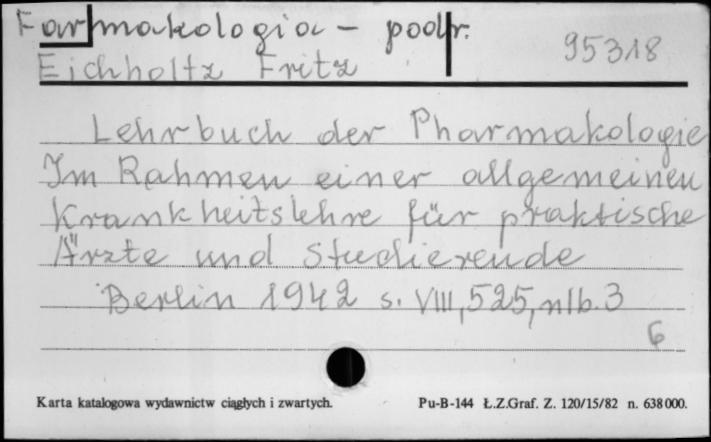 Farmakologia - podr.
95318
Eichholtz Fritz
Lehrbuch der Pharmakologie
Im Rahmen einer allgemeinen
Krankheitslehre für praktische
Ärzte und Studierende
Berlin 1942 s. VIII, 525, nlb. 3
6
Karta katalogowa wydawnictw ciągłych i zwartych. Pu-B-144 Ł.Z.Graf. Z. 120/15/82 n. 638000.